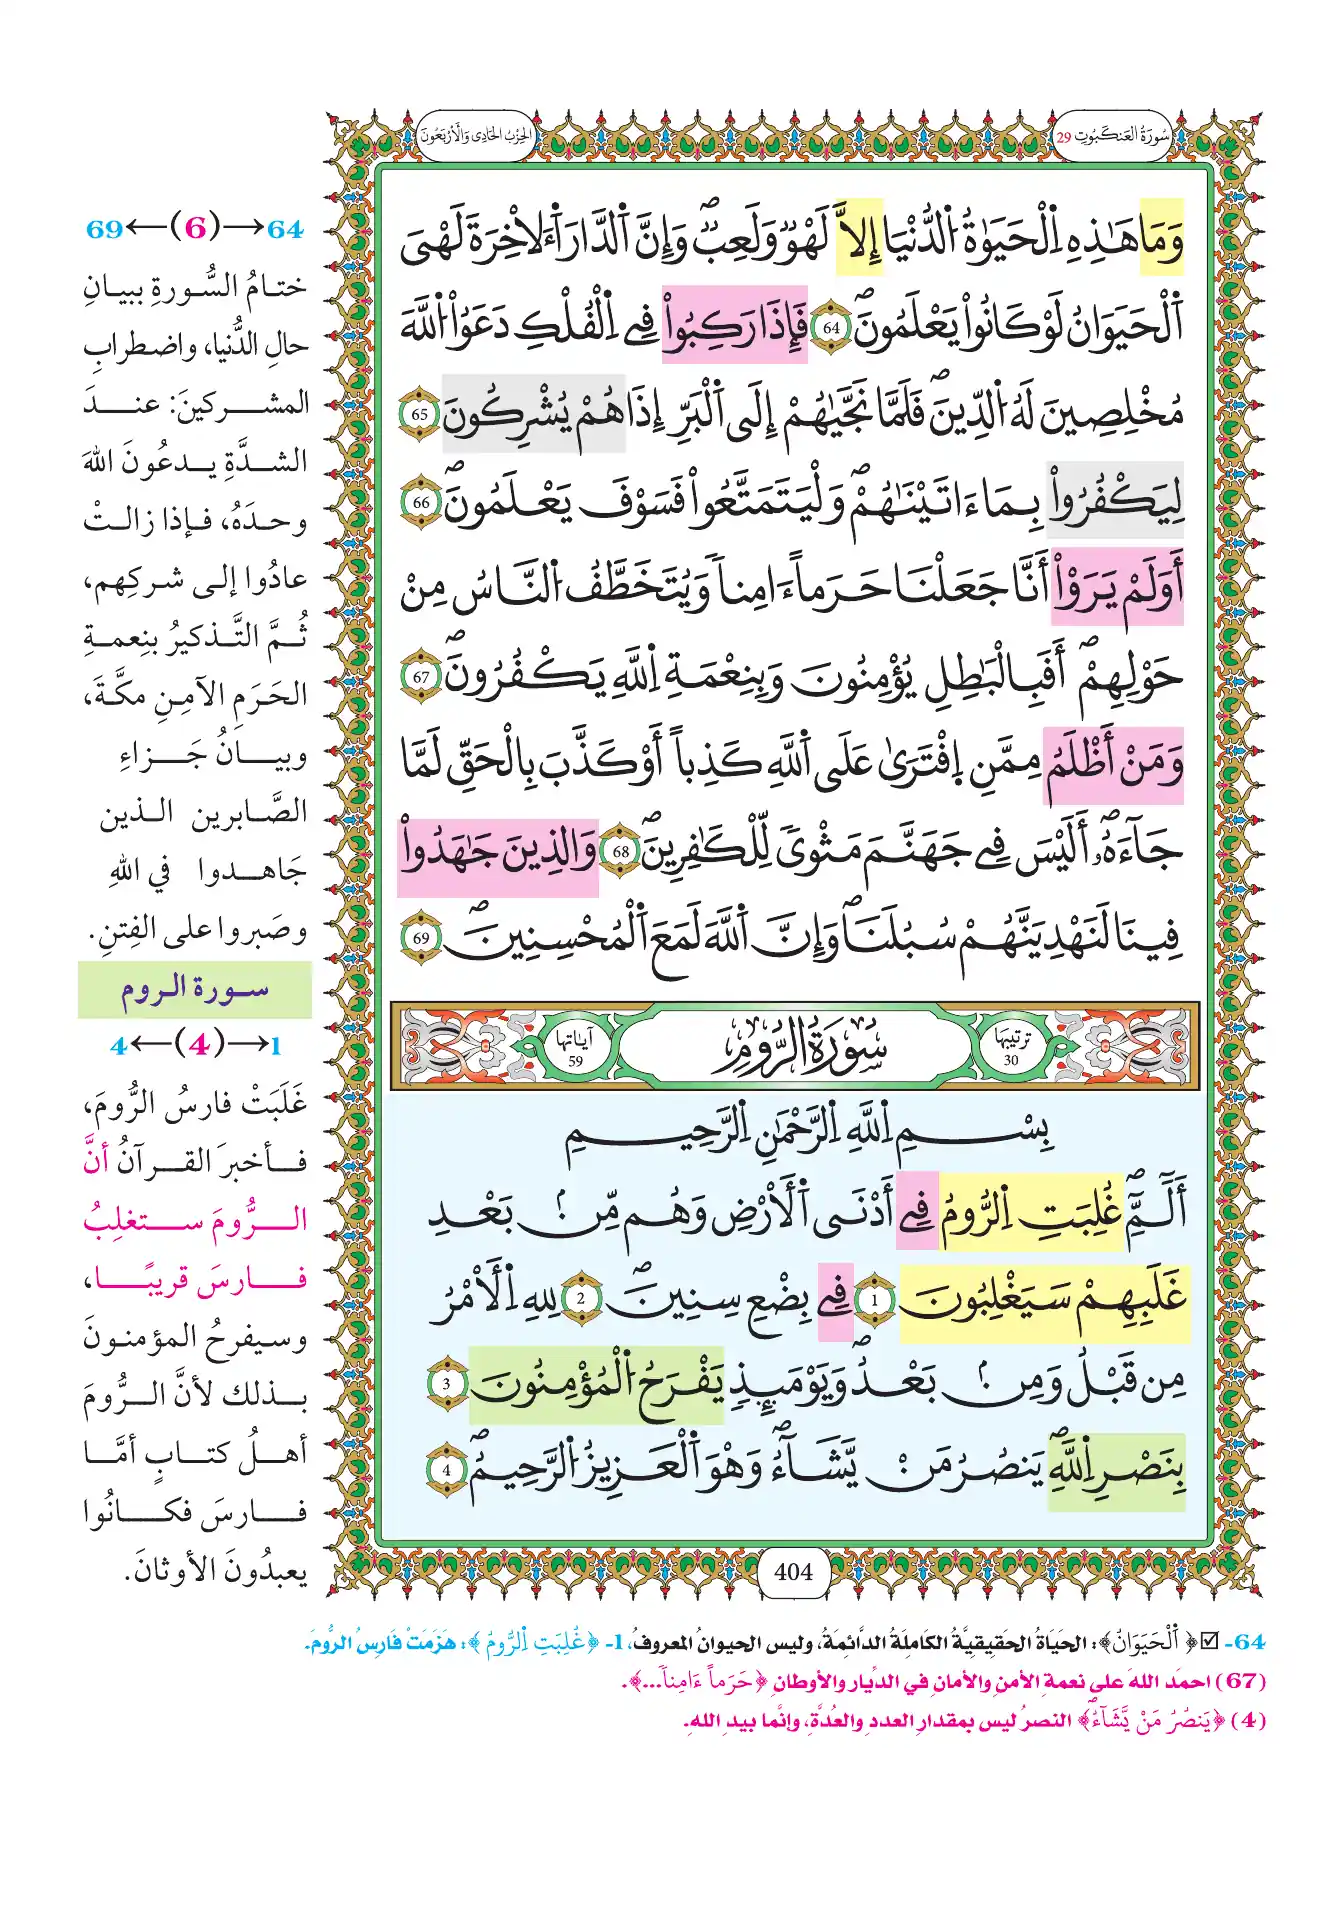 سُورَةُ العَنكَبُوتِ 29
الحِزْبُ الحَادِي وَالأَرْبَعُونَ
وَمَا هَٰذِهِ اِ۬لْحَيَوٰةُ اُ۬لدُّنْيَا إِلَّا لَهْوٞ وَلَعِبٞۖ وَإِنَّ اَ۬لدَّارَ اَ۬لَاخِرَةَ لَهْيَ
اَ۬لْحَيَوَانُ لَوْ كَانُواْ يَعْلَمُونَۖ 64 فَإِذَا رَكِبُواْ فِے اِ۬لْفُلْكِ دَعَوُاْ اُ۬للَّهَ
مُخْلِصِينَ لَهُ اُ۬لدِّينَۖ فَلَمَّا نَجَّيٰهُمْ إِلَى اَ۬لْبَرِّ إِذَا هُمْ يُشْرِكُونَ 65
لِيَكْفُرُواْ بِمَا ءَاتَيْنَاهُمْۖ وَلْيَتَمَتَّعُواْ فَسَوْفَ يَعْلَمُونَۖ 66
أَوَلَمْ يَرَوْاْ اَنَّا جَعَلْنَا حَرَماً ءَامِناٗ وَيُتَخَطَّفُ اُ۬لنَّاسُ مِنْ
حَوْلِهِمْۖ أَفَبِالْبَٰطِلِ يُؤْمِنُونَ وَبِنِعْمَةِ اِ۬للَّهِ يَكْفُرُونَۖ 67
وَمَنْ أَظْلَمُ مِمَّنِ اِ۪فْتَرَىٰ عَلَى اَ۬للَّهِ كَذِباً أَوْ كَذَّبَ بِالْحَقِّ لَمَّا
جَآءَهُۥۖ أَلَيْسَ فِے جَهَنَّمَ مَثْوىٗ لِّلْكَٰفِرِينَۖ 68 وَالذِينَ جَٰهَدُواْ
فِينَا لَنَهْدِيَنَّهُمْ سُبُلَنَاۖ وَإِنَّ اَ۬للَّهَ لَمَعَ اَ۬لْمُحْسِنِينَۖ 69
ترتيبها 30
سُورَةُ الرُّومِ
آياتها 59
بِسْمِ اِ۬للَّهِ اِ۬لرَّحْمَٰنِ اِ۬لرَّحِيمِ
أَلَٓمِّٓۖ غُلِبَتِ اِ۬لرُّومُ فِے أَدْنَى اَ۬لْأَرْضِ وَهُم مِّنۢ بَعْدِ
غَلَبِهِمْ سَيَغْلِبُونَ 1 فِے بِضْعِ سِنِينَۖ 2 لِلهِ اِ۬لْأَمْرُ
مِن قَبْلُ وَمِنۢ بَعْدُۖ وَيَوْمَئِذٖ يَفْرَحُ اُ۬لْمُؤْمِنُونَ 3
بِنَصْرِ اِ۬للَّهِۖ يَنصُرُ مَنْ يَّشَآءُۖ وَهْوَ اَ۬لْعَزِيزُ اُ۬لرَّحِيمُۖ 4
404
64→(6)←69
ختامُ السُّورةِ ببيانِ
حالِ الدُّنيا، واضطرابِ
المشركينَ: عندَ
الشدَّةِ يدعُونَ اللهَ
وحدَهُ، فإذا زالتْ
عادُوا إلى شركِهم،
ثُمَّ التَّذكيرُ بنِعمةِ
الحَرَمِ الآمِنِ مكَّةَ،
وبيانُ جَزاءِ
الصَّابرين الذين
جَاهدوا في اللهِ
وصَبروا على الفِتنِ.
سورة الروم
1→(4)←4
غَلَبَتْ فارسُ الرُّومَ،
فأخبرَ القرآنُ أنَّ
الرُّومَ ستغلِبُ
فارسَ قريبًا،
وسيفرحُ المؤمنونَ
بذلك لأنَّ الرُّومَ
أهلُ كتابٍ أمَّا
فارسَ فكانُوا
يعبدُونَ الأوثانَ.
64- ☑ ﴿اَ۬لْحَيَوَانُ﴾: الحيَاةُ الحَقِيقِيَّةُ الكَامِلَةُ الدَّائِمَةُ، وليس الحيوانُ المعروفُ، 1- ﴿غُلِبَتِ اِ۬لرُّومُ﴾: هَزَمَتْ فَارِسُ الرُّومَ.
(67) احمَد اللهَ على نعمةِ الأمنِ والأمانِ في الدِّيارِ والأوطانِ ﴿حَرَماً ءَامِناٗ...﴾.
(4) ﴿يَنصُرُ مَنْ يَّشَآءُۖ﴾ النصرُ ليس بمقدارِ العددِ والعُدَّةِ، وإنَّما بيدِ اللهِ.